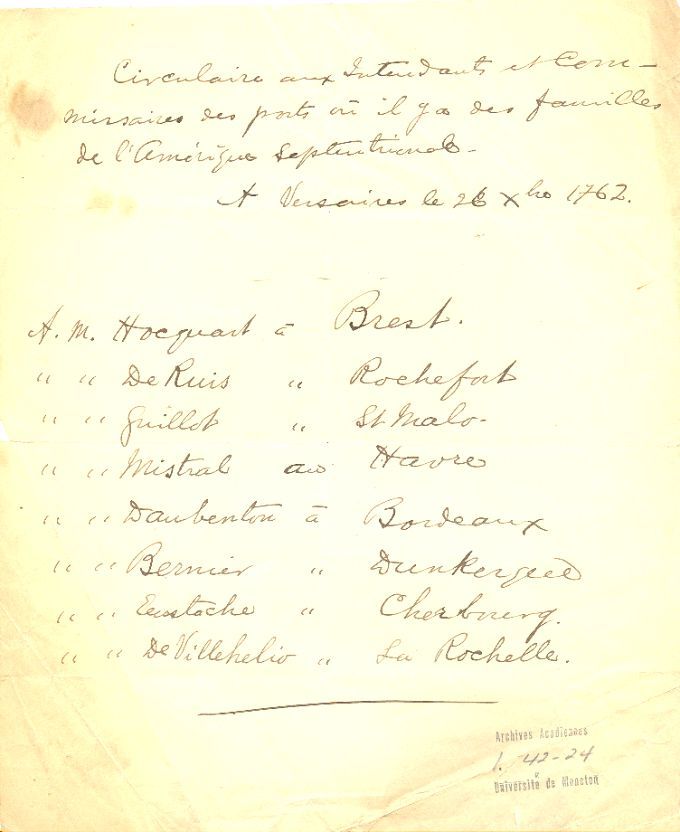 Circulaire aux Intendants et Com-
missaires des ports où il y a des familles
de l'Amérique Septentrionale.
A Versaires le 26 Xbre 1762.
A. M. Hocquart à Brest.
" " De Ruis " Rochefort
" " Guillot " St Malo.
" " Mistral au Havre
" " Daubenton à Bordeaux
" " Bernier " Dunkerque
" " Eustache " Cherbourg.
" " De Villehelio " La Rochelle.
Archives Acadiennes
1. 42-24
Université de Moncton